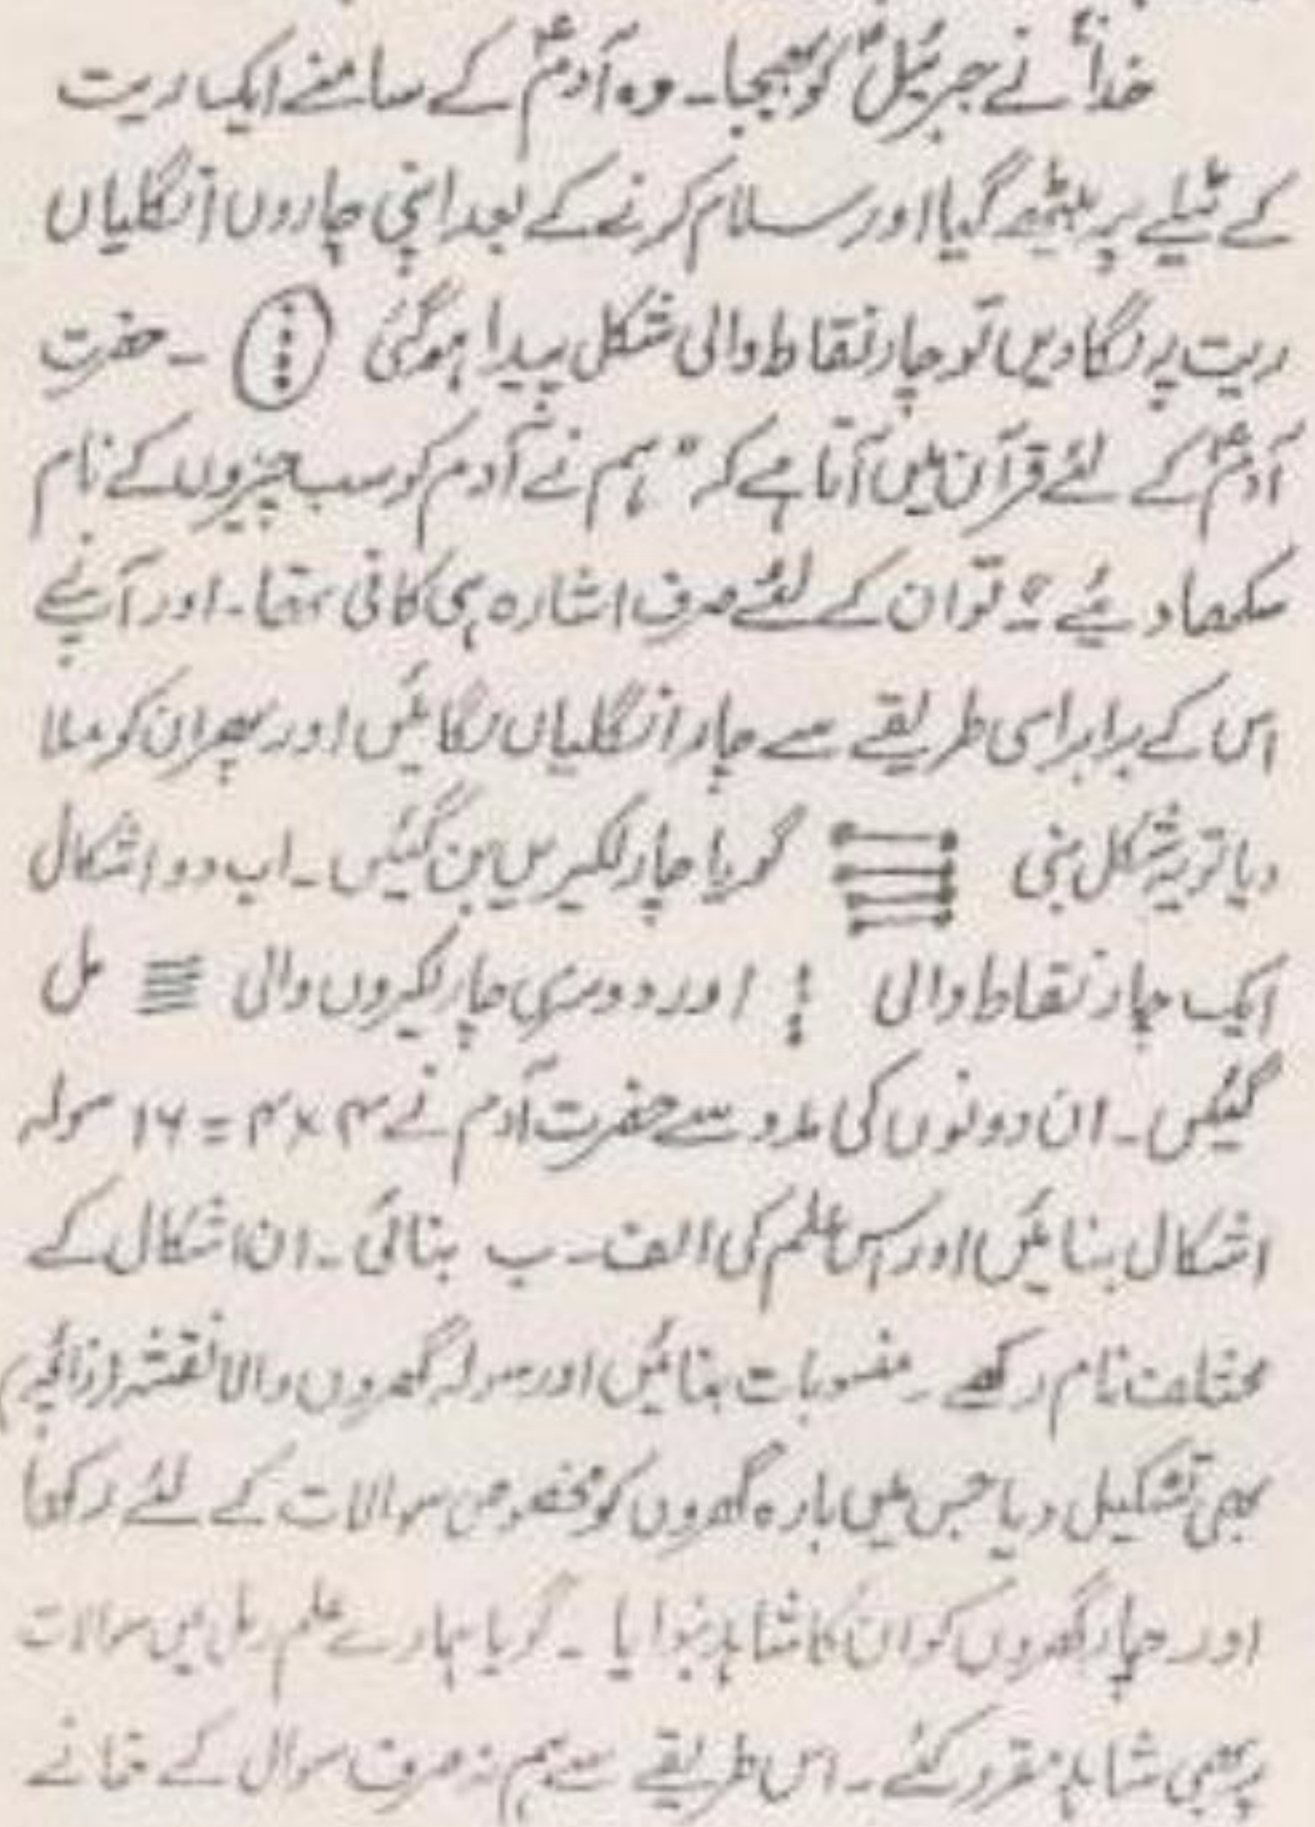 خدا نے جبرئیلؑ کو بھیجا۔ وہ آدمؑ کے سامنے ایک ریت
کے ٹیلے پر بیٹھ گیا اور سلام کرنے کے بعد اپنی چاروں انگلیاں
ریت پر لگا دیں تو چار نقاط والی شکل پیدا ہوگئی ۔ حضرت
آدمؑ کے لئے قرآن میں آتا ہے کہ "ہم نے آدم کو سب چیزوں کے نام
سکھا دیئے"۔ تو ان کے لئے صرف اشارہ ہی کافی تھا۔ اور آپنے
اس کے برابر اسی طریقے سے چار انگلیاں لگائیں اور پھر ان کو ملا
دیا تو یہ شکل بنی گویا چار لکیریں بن گئیں۔ اب دو اشکال
ایک چار نقاط والی اور دوسری چار لکیروں والی مل
گئیں۔ ان دونوں کی مدد سے حضرت آدم نے ۴×۴=۱۶ سولہ
اشکال بنائیں اور اس علم کی الف۔ ب بنائی۔ ان اشکال کے
مختلف نام رکھے۔ منسوبات بنائیں اور سولہ گھروں والا نقشہ (زائچہ)
بھی تشکیل دیا جس میں بارہ گھروں کو مخصوص سوالات کے لئے رکھا
اور چار گھروں کو ان کا شاہد بنوایا ۔ گویا ہمارے علم رمل میں سوالات
پر بھی شاہد مقرر کئے۔ اس طریقے سے ہم نہ صرف سوال کے خانے